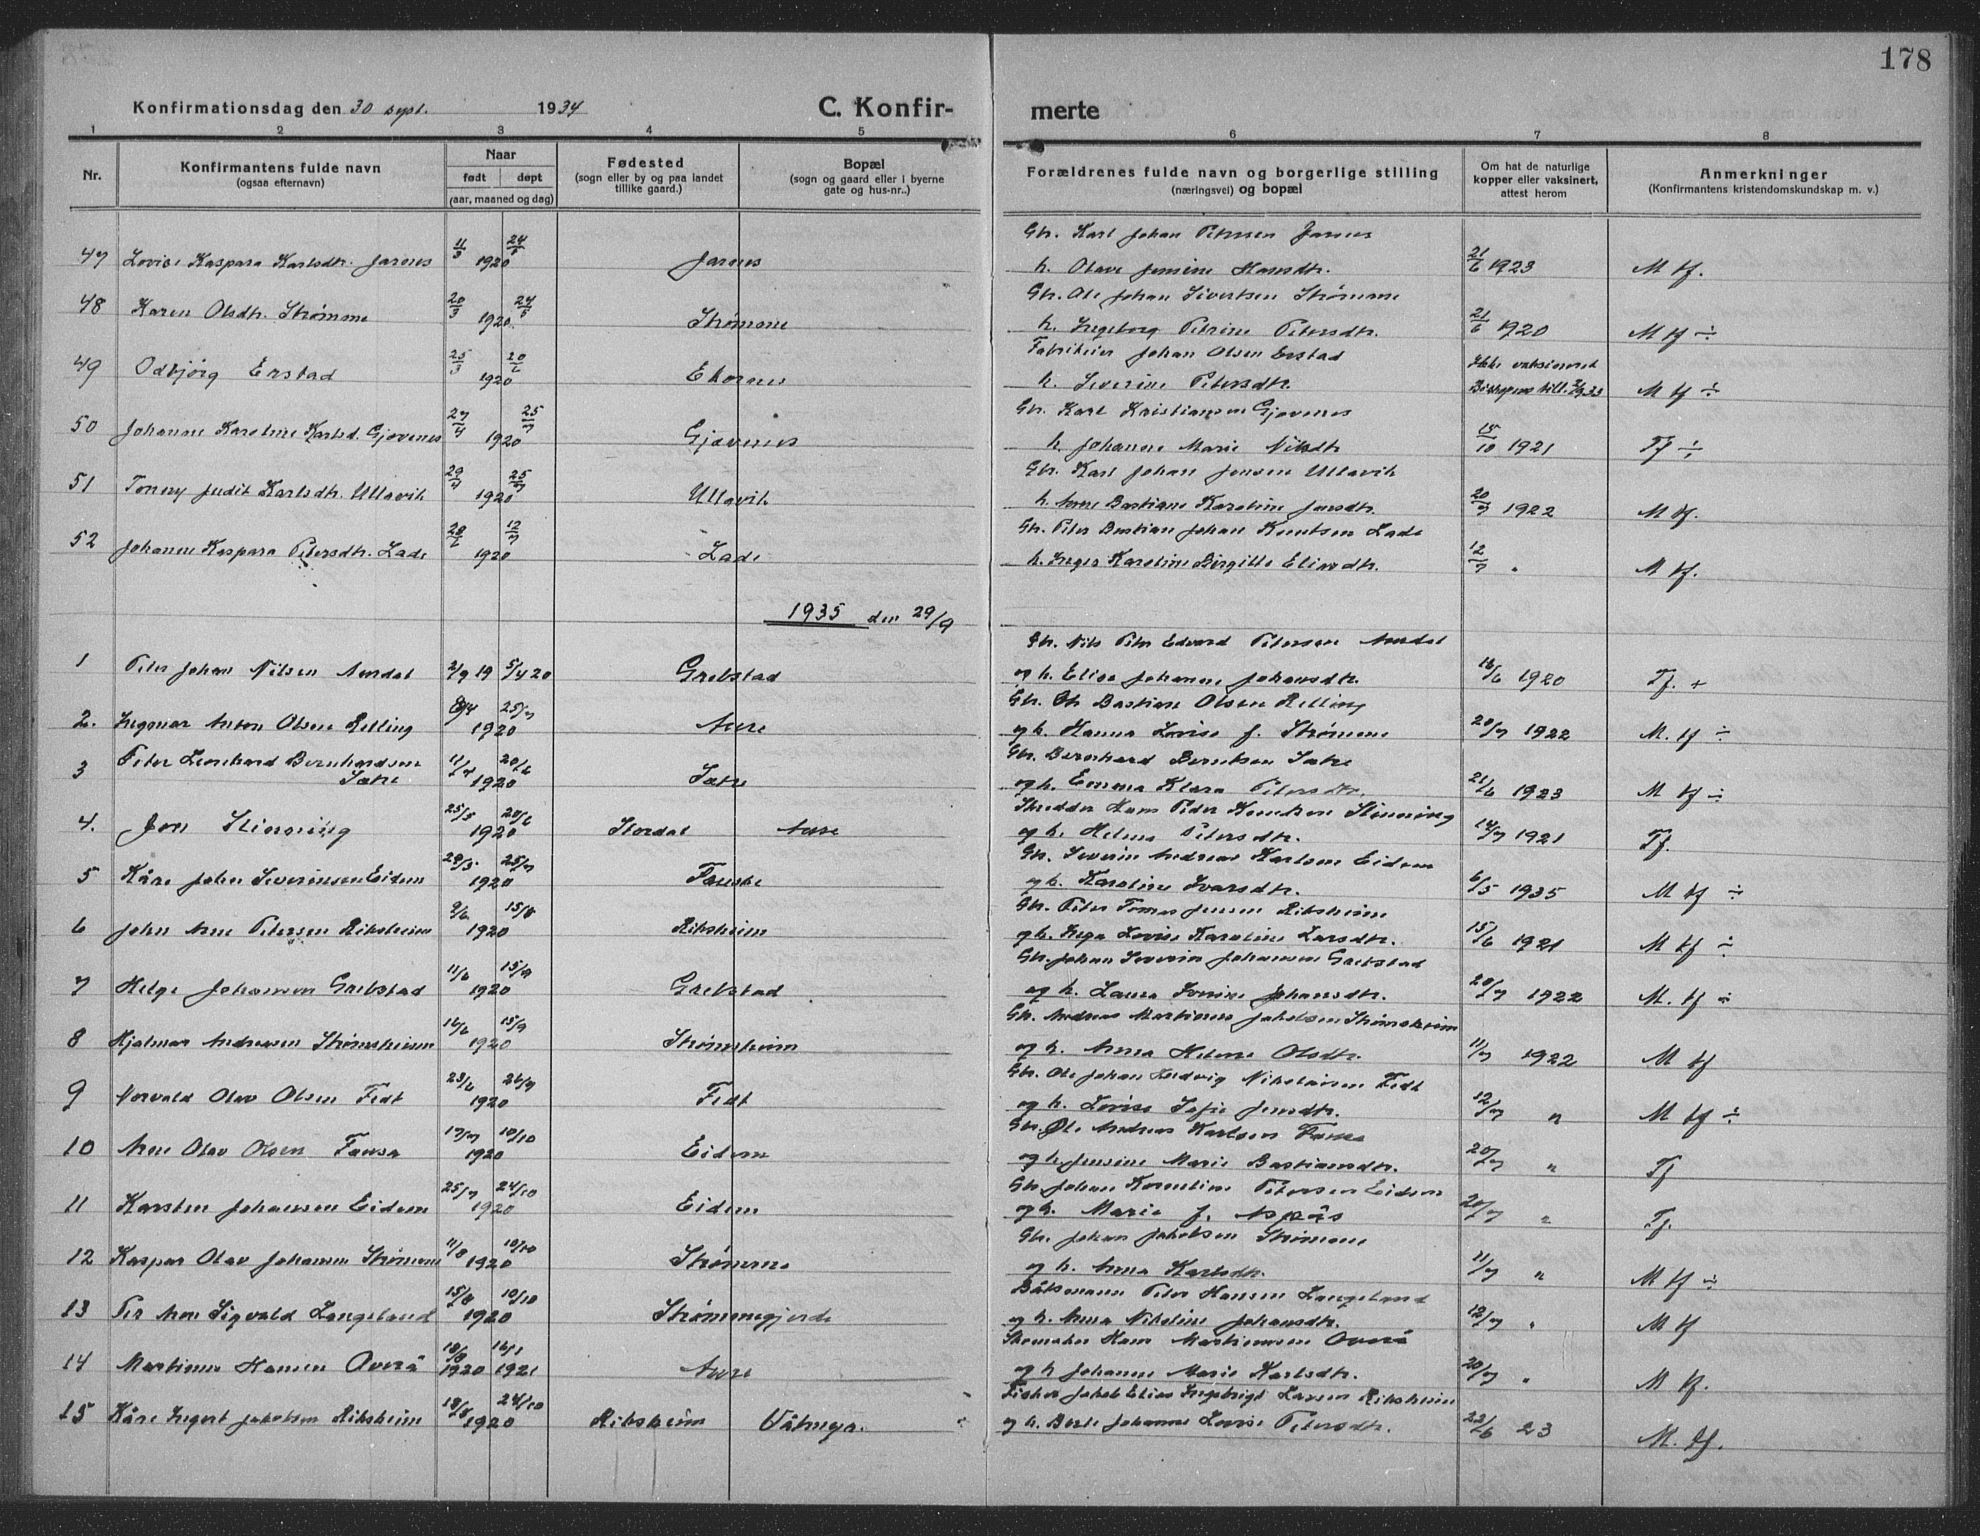 178
Konfirmationsdag den 30 sept. 1934
C. Konfir-
merte
1 2 3 4 5 6 7 8
Nr.
Konfirmantens fulde navn
(ogsaa efternavn)
Naar
født døpt
(aar, maaned og dag)
Fødested
(sogn eller by og paa landet
tillike gaard.)
Bopæl
(sogn og gaard eller i byerne
gate og hus-nr..)
Forældrenes fulde navn og borgerlige stilling
(næringsvei) og bopæl
Om hat de naturlige
kopper eller vaksinert,
attest herom
Anmerkninger
(Konfirmantens kristendomskundskap m. v.)
Gbr. Karl Johan Petersen Jarnes
47 Lovise Kaspara Karlsdtr. Jarnes 11/3 1920 Jarnes h. Olave Jensine Hansdtr. 21/6 1923 M tf.
Gbr. Ole Johan Sivertsen Strømme
48 Karen Olsdtr. Strømme 20/3 24/5 1920. Strømme h. Ingeborg Petrine Petersdtr. 21/6 1920 M tf ÷
Fabrikeier Johan Olsen Erstad Ikke vaksineret
49 Odbjørg Erstad 25/3 20/6 1920 Ekornes h. Severine Petersdtr. M tf ÷
Gbr. Karl Kristiansen Gjævenes
50 Johanne Karoline Karlsd. Gjævenes 27/4 25/7 1920 Gjævenes h. Johanne Marie Nilsdtr 15/10 1921 Tf ÷
Gbr. Karl Johan Jensen Ullavik
51 Tonny Judit Karlsdtr. Ullavik 25/7 1920 Ullavik h. Anne Bastiane Karoline Jensdtr. 20/7 1922 M tf.
Gbr. Peter Bastian Johan Knutsen Lade
52 Johanne Kaspara Petersdtr. Lade 28/6 12/7 1920 Lade h. Inger Karoline Birgitte Eliasdtr. 12/7 " M tf.
1935 den 29/9
Gbr. Nils Peter Edvard Petersen Aurdal
1 Peter Johan Nilsen Aurdal 2/9 19 5/4 20 Grebstad og h. Elise Johanne Johansdtr. 16/6 1920 Tf. +
Gbr. Ole Bastian Olsen Relling
2. Ingvar Anton Olsen Relling 8/4 25/7 1920 Aure og h. Hanna Lovise f. Strømme 20/7 1922 M. tf ÷
Gbr. Bernhard Berntsen Satre
3 Peter Leonhard Bernhardsen Satre 11/4 20/6 1920 Satre og h. Emma Klara Petersdtr. 21/6 1923 M tf ÷
Skrædder Hans Peder Knudsen Stinnring
4. Jon Stinnring 25/5 20/6 1920 Stordal Aure og h. Helma Petersdtr. 14/7 1921 Tf.
Gbr. Severin Andreas Karlsen Eidem
5 Kåre John Severinsen Eidem 29/5 25/7 1920 Fauske og h. Karoline Ivarsdtr. 6/5 1935 M tf ÷
Gbr. Peter Tomas Jensen Riksheim
6 John Arne Petersen Riksheim 9/6 15/8 1920 Riksheim og h. Inga Lovise Karoline Larsdtr. 15/6 1921 M tf ÷
Gbr. Johan Severin Johansen Grebstad
7 Helge Johansen Grebstad 11/6 15/9 1920 Grebstad og h. Laura Lovise Johansdtr. 20/7 1922 M. tf ÷
Gbr. Andreas Martinus Jakobsen Strømsheim
8 Hjalmar Andreasen Strømsheim 16/6 15/9 1920 Strømsheim og h. Anna Helene Olsdtr. 11/7 1922 M tf
Gbr. Ole Johan Ludvig Nikolaisen Fedt
9 Norvald Olav Olsen Fedt 23/6 26/9 1920 Fedt og h. Lovise Sofie Jensdtr. 12/7 " M tf ÷
Gbr. Ole Andreas Karlsen Fausa
10 Arne Olav Olsen Fausa 17/7 10/10 1920 Eidem og h. Jensine Marie Bastiansdtr. 20/7 " Tf
Gbr Johan Kornelius Petersen Eidem
11 Karsten Johansen Eidem 25/7 24/10 1920 Eidem og h. Marie f. Aspås 20/7 " Tf.
Gbr. Johan Jakobsen Strømme
12 Kaspar Olav Johansen Strømme 11/8 10/10 1920 Strømme og h. Anna Karlsdtr. 11/7 " M tf ÷
Båtsmann Peter Hansen Langeland
13 Per Arne Sigvald Langeland 15/8 10/10 1920 Strømmegjerde og h. Anna Nikoline Johansdtr. 12/7 " M tf
Skomaker Hans Martinussen Overå
14 Martinus Hansen Overå 18/8 1920 16/1 1921 Aure og h Johanne Marie Karlsdtr. 20/7 " M tf.
Fisker Jakob Elias Ingebrigt Larsen Riksheim
15 Kåre Ingert Jakobsen Riksheim 18/8 24/10 1920 Riksheim og h. Berte Johanne Lovise Petersdtr. 22/6 23 M. tf.